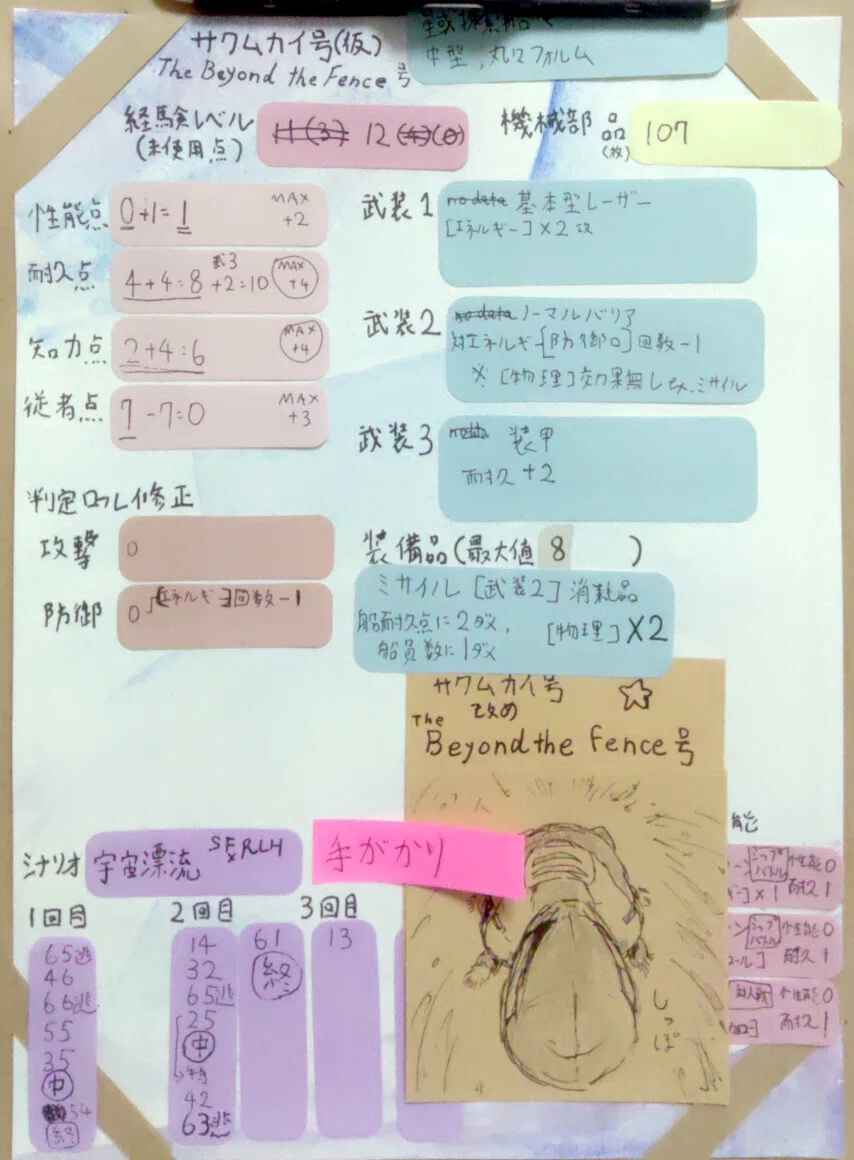 サワムカイ号(仮)
The Beyond the Fence 号
中型,丸いフォルム
経験レベル
(未使用点)
11(3) 12(4)(0)
機械部品
(枚)
107
性能点
0+1=1
MAX
+2
耐久点
4+4=8 +2=10
武3
MAX
+4
知力点
2+4=6
MAX
+4
従者点
7-7=0
MAX
+3
武装1
no data 基本型レーザー
[エネルギー]×2攻
武装2
no data ノーマルバリア
対エネルギー[防御ロ]回数-1
※[物理]効果無し ex.ミサイル
武装3
装甲
耐久+2
判定ロール修正
攻撃
0
防御
0
エネルギー
回数-1
装備品(最大値 8 )
ミサイル[武装2]消耗品
船耐久点に2ダメ,
船員数に1ダメ
[物理]×2
サワムカイ号 ☆
改め
The
Beyond the Fence号
しっぽ
シナリオ
宇宙漂流
手がかり
1回目
65逃
46
66逃
55
35
中
54
終
2回目
14
32
65逃
25
中
特
42
63逃
61
終
3回目
13
能
シップ
バトル
个性能0
]×1
耐久1
シップ
バトル
个性能0
ール]
耐久1
対人戦
个性能0
耐久1